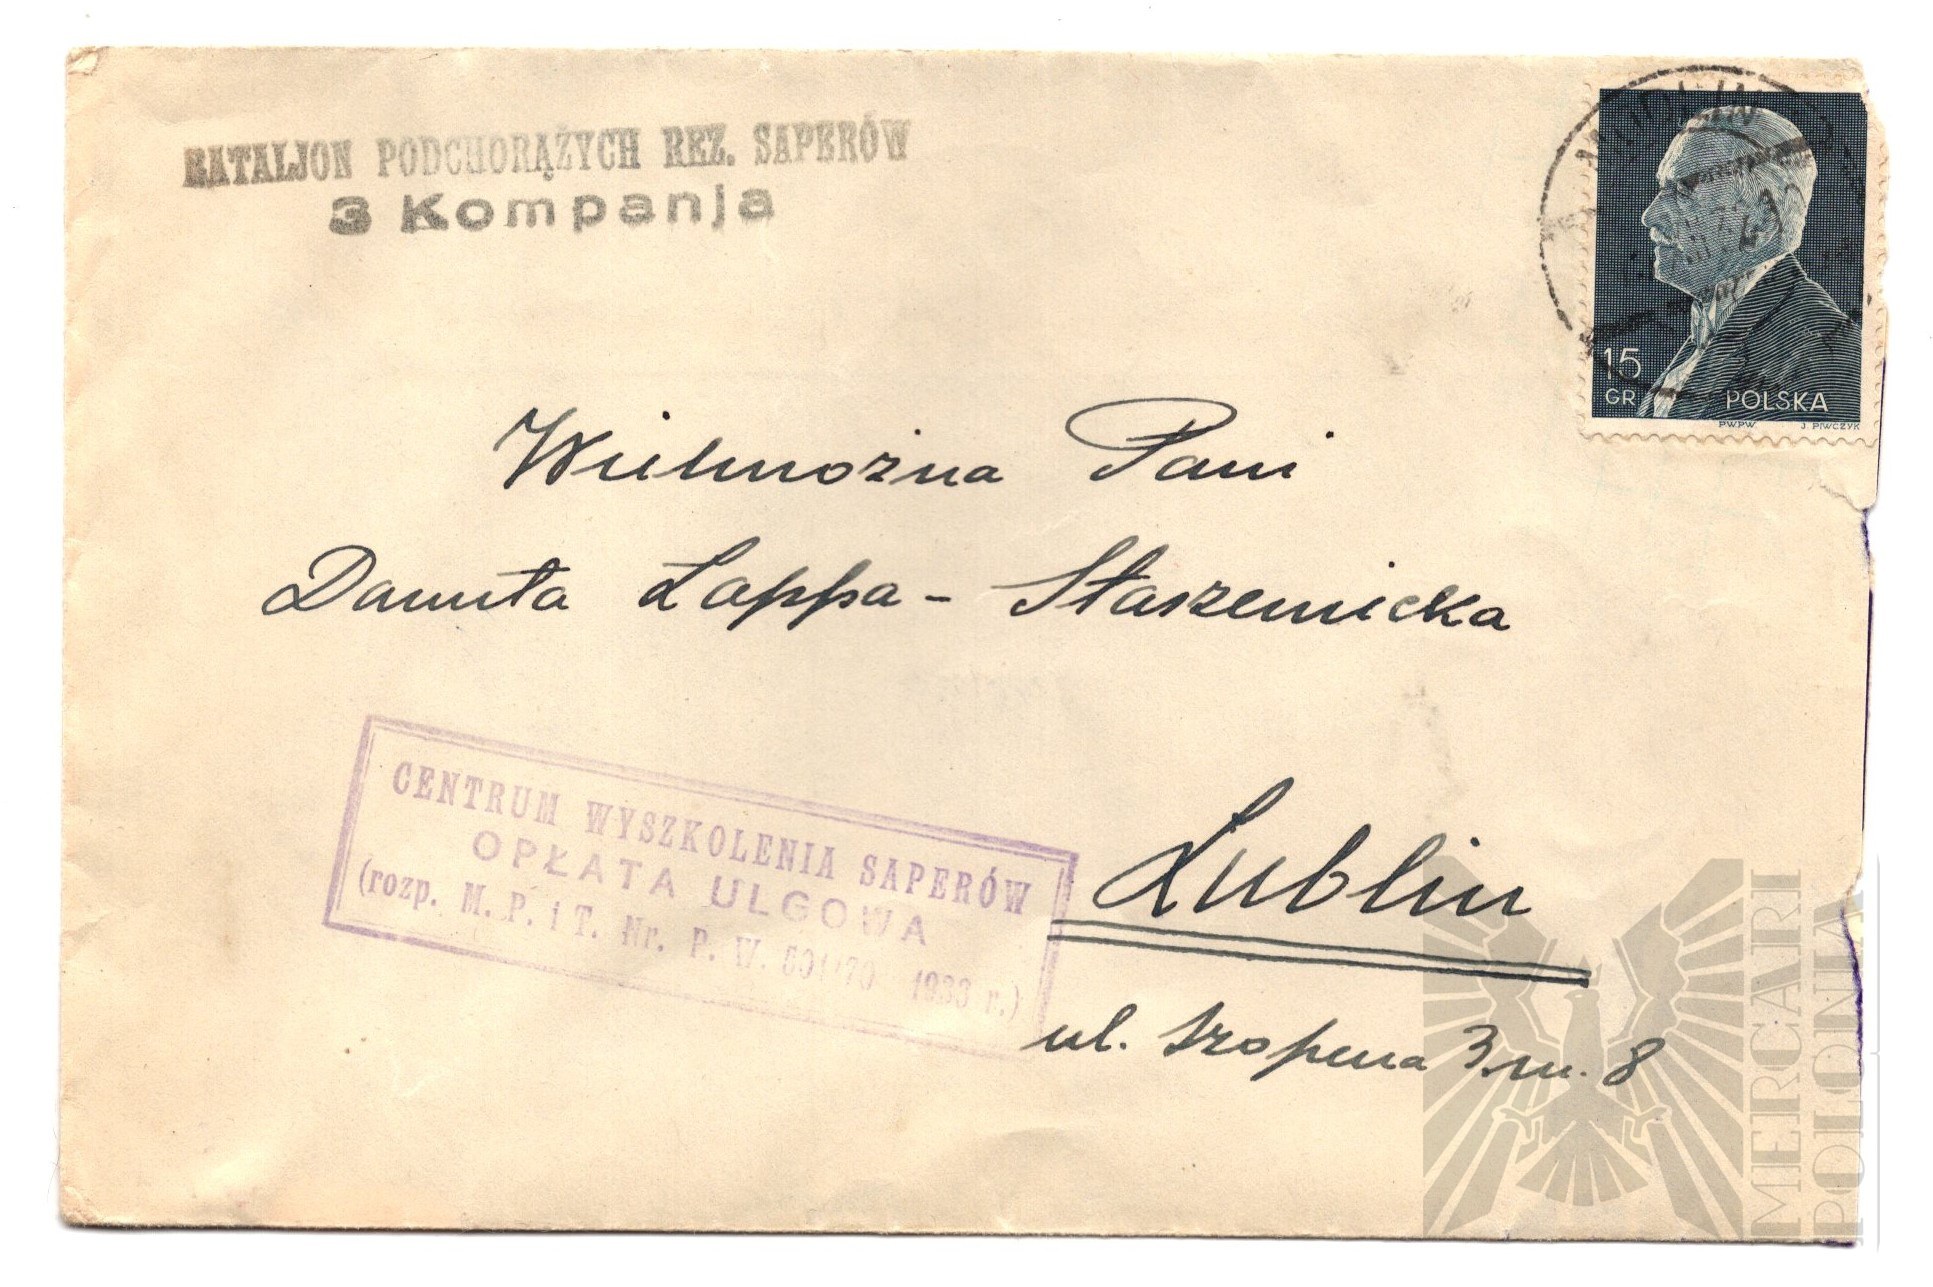 BATALJON PODCHORĄŻYCH REZ. SAPERÓW
3 Kompanja
15
GR
POLSKA
PWPW. J. PIWCZYK
Wielmożna Pani
Danuta Łappa-Starzenicka
CENTRUM WYSZKOLENIA SAPERÓW
OPŁATA ULGOWA
(rozp. M. P. i T. Nr. P. W. 1933 r.)
Lublin
ul. Szopena 3 m. 8
MERCARI
POLONIA